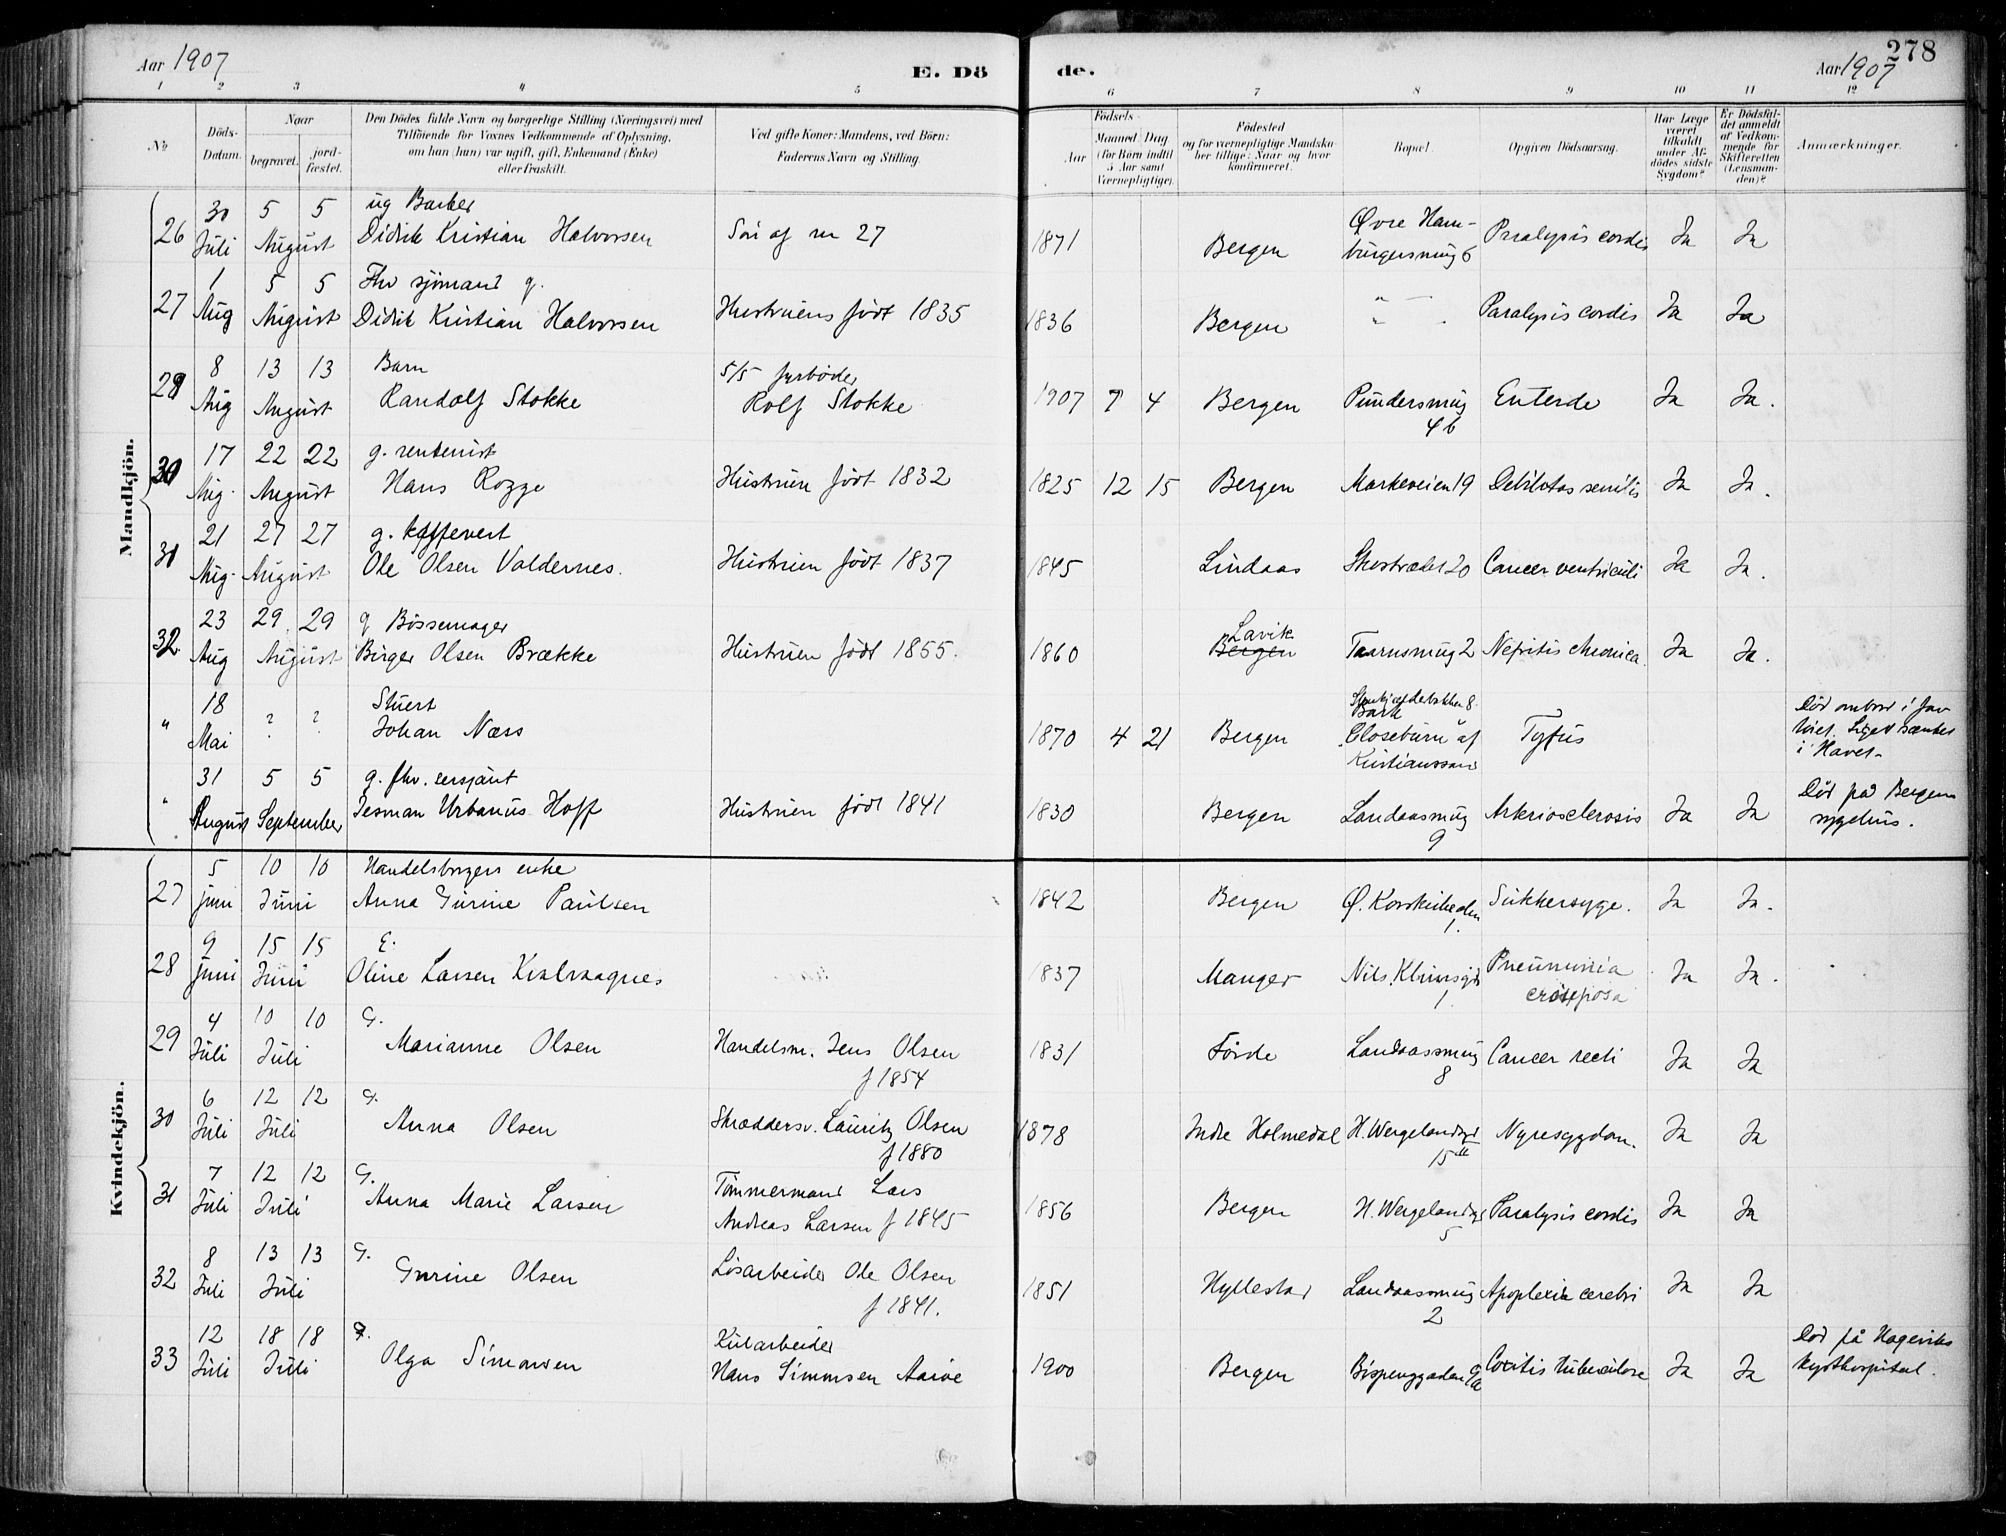 Aar 1907
E. Döde.
Aar 1907
278
1 2 3 4 5 6 7 8 9 10 11 12
No
Döds-Datum.
Naar
begravet.
jordfæstet.
Den Dödes fulde Navn og borgerlige Stilling (Næringsvei) med
Tilföiende for Voxnes Vedkommende af Oplysning,
om han (hun) var ugift, gift, Enkemand (Enke)
eller fraskilt.
Ved gifte Koner: Mandens, ved Börn:
Faderens Navn og Stilling.
Födsels-
Aar
Maaned
Dag
(for Börn indtil
5 Aar samt
Værnepligtige).
Födested
og for værnepligtige Mandskaber tillige: Naar og hvor
konfirmeret.
Bopæl
Opgiven Dödsaarsag.
Har Læge
været
tilkaldt
under Afdödes sidste
Sygdom?
Er Dödsfaldet anmeldt
af Vedkommende for
Skifteretten
(Lensmanden)?
Anmærkninger.
Mandkjön.
26 30 Juli 5 5 August ug Barber
Didrik Kristian Halvorsen Sön af nr 27 1871 Bergen Øvre Hamburgersmug 6 Paralysis cordis Ja Ja
27 1 Aug 5 5 August Fhv sjömand g.
Didrik Kristian Halvorsen Hustruens födt 1835 1836 Bergen " " Paralysis cordis Ja Ja
29 8 Aug 13 13 August Barn
Randolf Stokke 5/5 fyrböder
Rolf Stokke 1907 7 4 Bergen Pundersmug 4b Enterde Ja Ja.
30 17 Aug. 22 22 August g. rentenist
Hans Rogge Hustruen födt 1832 1825 12 15 Bergen Markeveien 19 Debilitas senilis Ja Ja.
31 21 Aug. 27 27 August g. kaffevert
Ole Olsen Valdernes. Hustruen födt 1837 1845 Lindaas Skostrædet 20 Cancer ventriculi Ja Ja.
32 23 Aug 29 29 August g Bössemager
Birger Olsen Brække Hustruen födt 1855. 1860 Lavik
Bergen Taarnsmug 2 Nefritis chronica. Ja Ja.
" 18 Mai ? ? Stuert
Johan Næss 1870 4 21 Bergen Bark
Closeburn af
Kristianssand Tyfus Död ombord i fartöiet. Liget sænket
i Havet.
" 31 August 5 5 September g. fhv. sersjant
Jesman Urbanus Hoff Hustruen födt 1841 1830 Bergen Landaasmug
9 Arteriosclerosis Ja Ja Död paa Bergens
sygehus.
Kvindekjön.
27 5 juni 10 10 Juni Handelsborgers enke
Anna Gurine Paulsen 1842 Bergen Ø. Korskirkealm.
1. Sukkersyge. Ja Ja.
28 9 juni 15 15 Juni E.
Oline Larsen 1837 Manger 1. Pneumonia
crouposa Ja Ja.
29 4 Juli 10 10 Juli G.
Marianne Olsen Handelsm. Jens Olsen
f 1854 1831 Förde Landaassmug
8 Cancer recti Ja Ja
30 6 Juli 12 12 Juli G.
Anna Olsen Skræddersv. Lauritz Olsen
f 1880 1878 Indre Holmedal H. Wergelandsgd
15 Nyresygdom. Ja Ja
31 7 Juli 12 12 Juli G.
Anna Marie Larsen Tömmermand Lars
Andreas Larsen f 1845 1856 Bergen H. Wergelandsgd
5 Paralysis cordis Ja Ja
32 8 Juli 13 13 Juli G.
Gurine Olsen Lösarbeider Ole Olsen
f 1841. 1851 Hyllestad Landaassmug
2 Apoplexia cerebri Ja Ja
33 12 Juli 18 18 Juli
Olga Simonsen Kularbeider
Hans Simonsen 1900 Bergen Bispenggaden 9a Coxitis tuberculose Ja Ja Död på Hageviks
kysthospital.